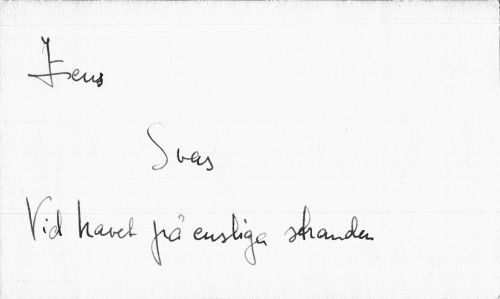 Jens
Svas
Vid havet på ensliga stranden